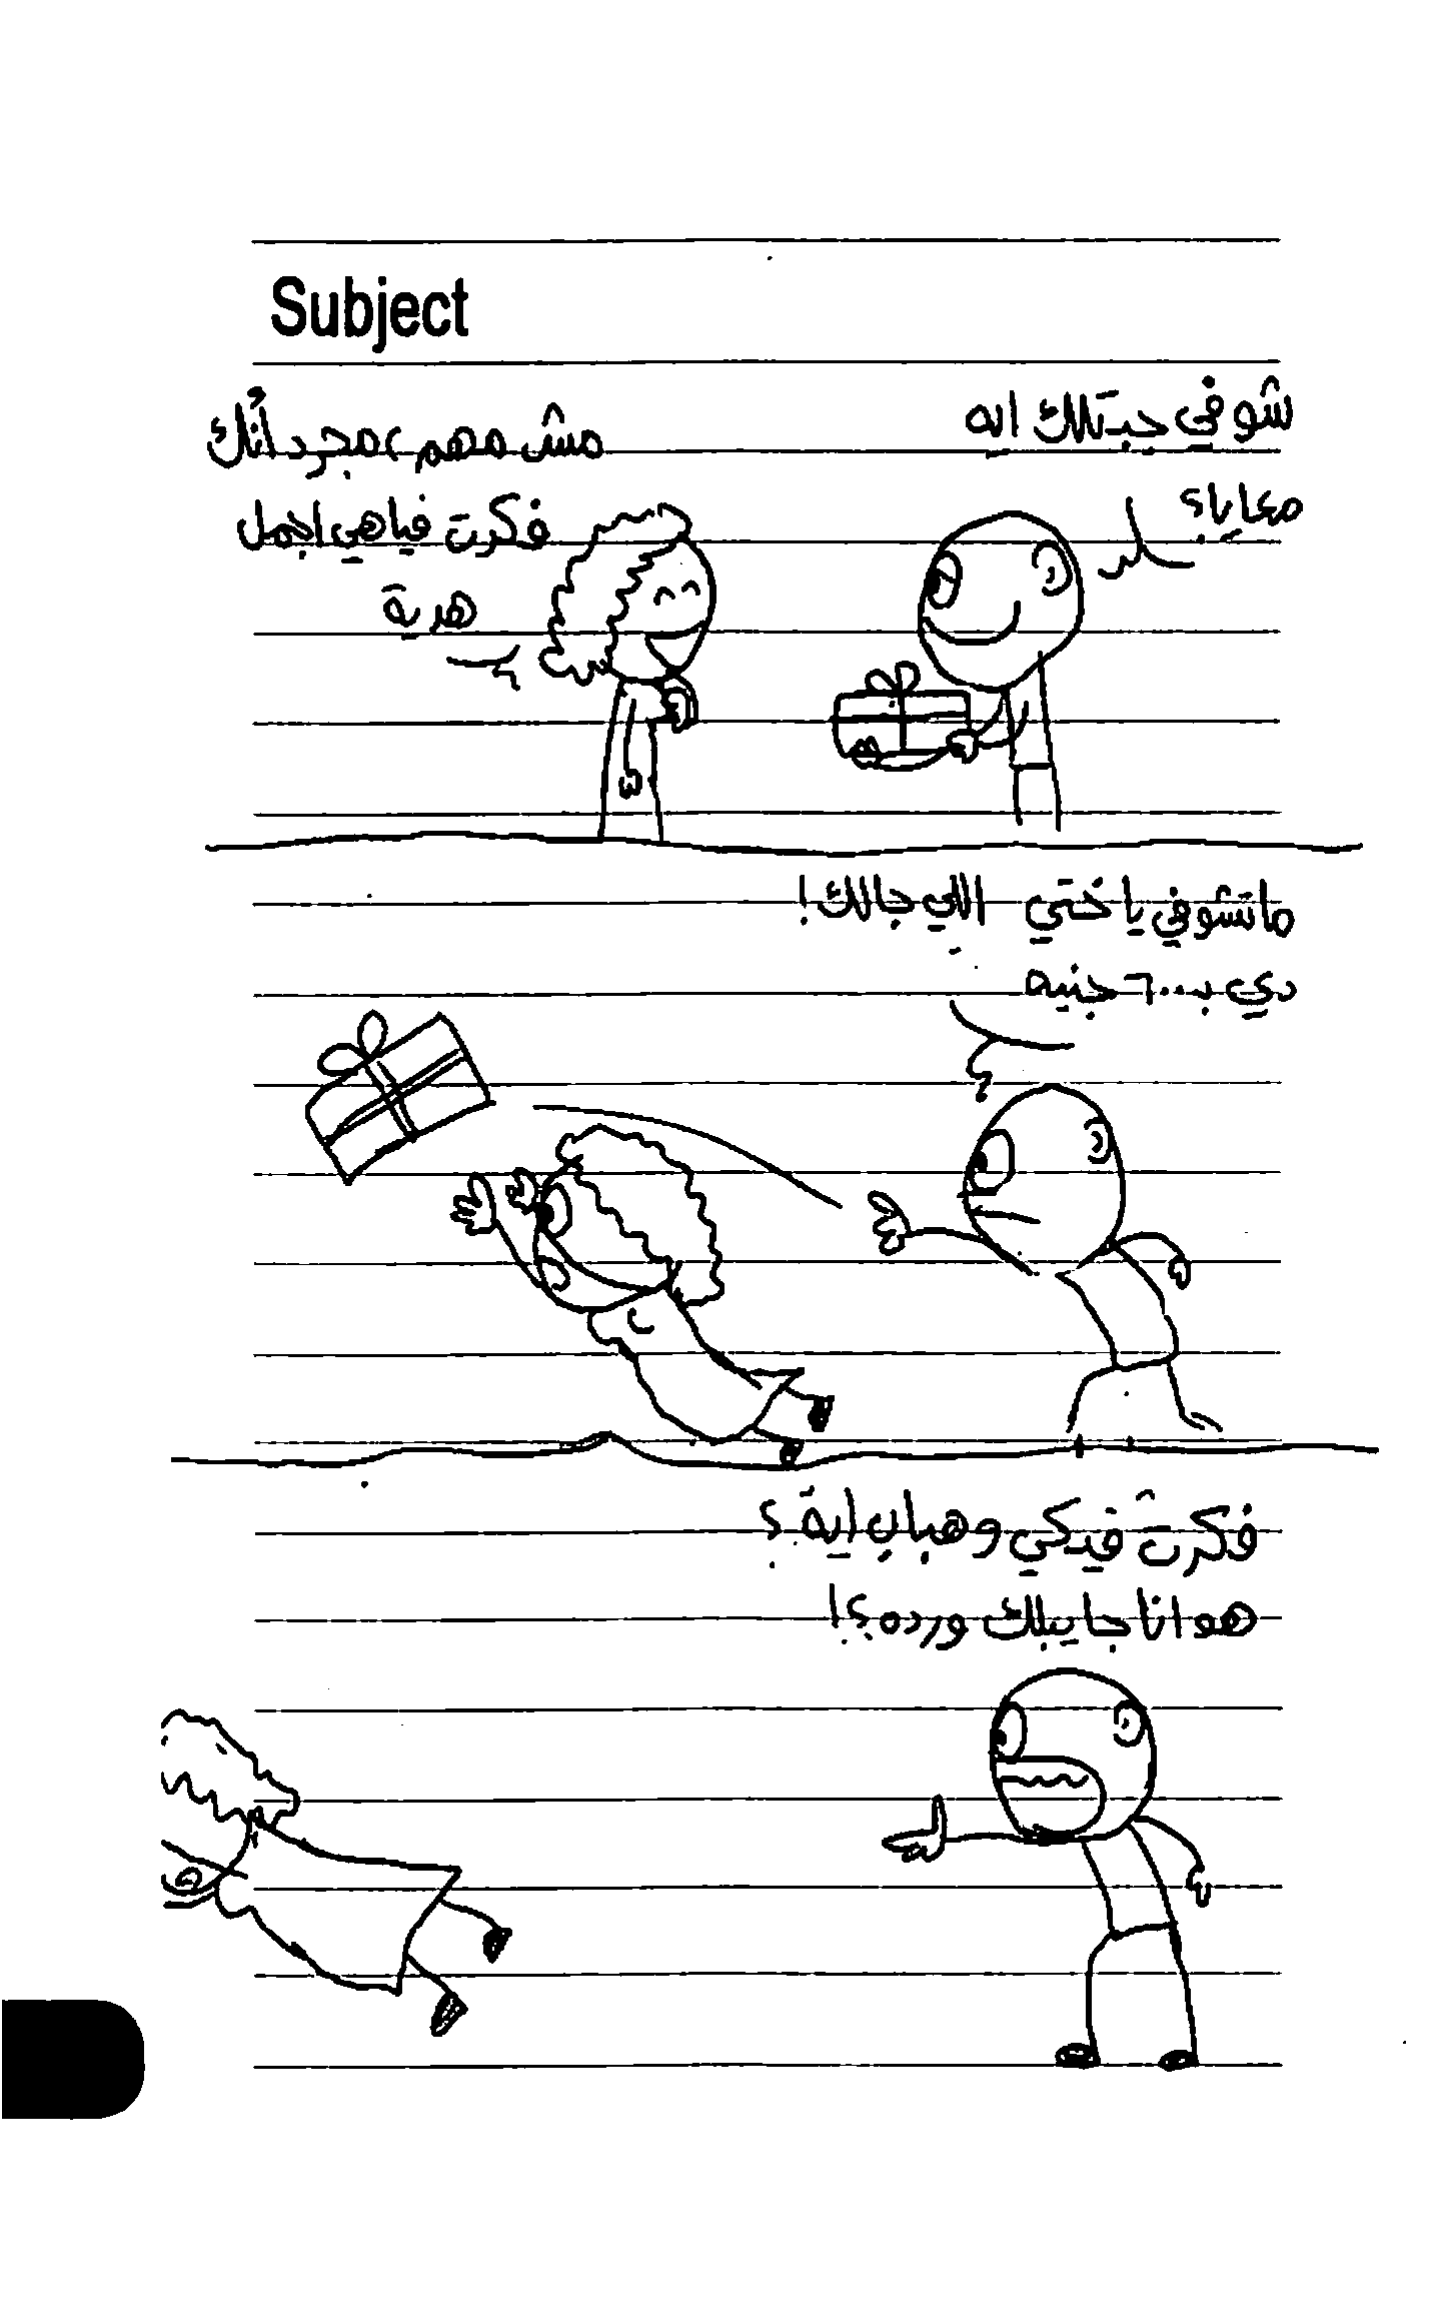 Subject
شوفي جبتلك ايه
معايا؟
مش مهم، مجرد أنك
فكرت فيا هي اجمل
هدية
ماتشوفي ياختي اللي جالك!
دي ب٦٠٠ جنيه
فكرت فيكي وهباب اية؟
هو انا جايبلك ورده؟!